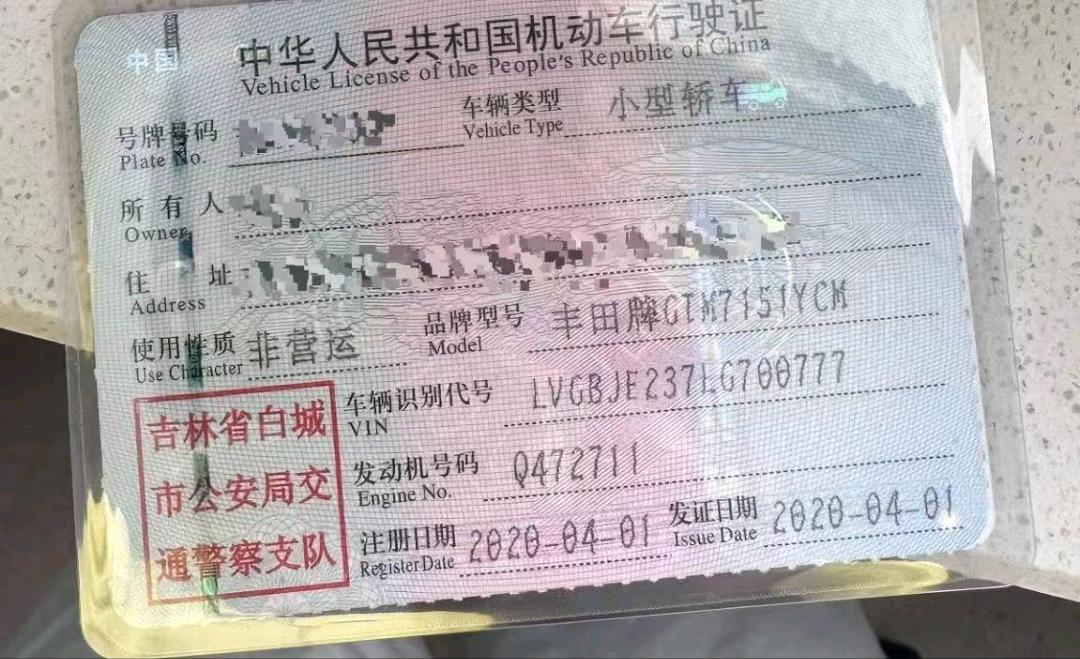 中国
中华人民共和国机动车行驶证
Vehicle License of the People's Republic of China
号牌号码
Plate No.
车辆类型 小型轿车
Vehicle Type
所有人
Owner
住址
Address
使用性质 非营运
Use Character
品牌型号 丰田牌GTM7151YCM
Model
车辆识别代号 LVGBJE237LG700777
VIN
发动机号码 Q472711
Engine No.
注册日期 2020-04-01
Register Date
发证日期 2020-04-01
Issue Date
吉林省白城
市公安局交
通警察支队